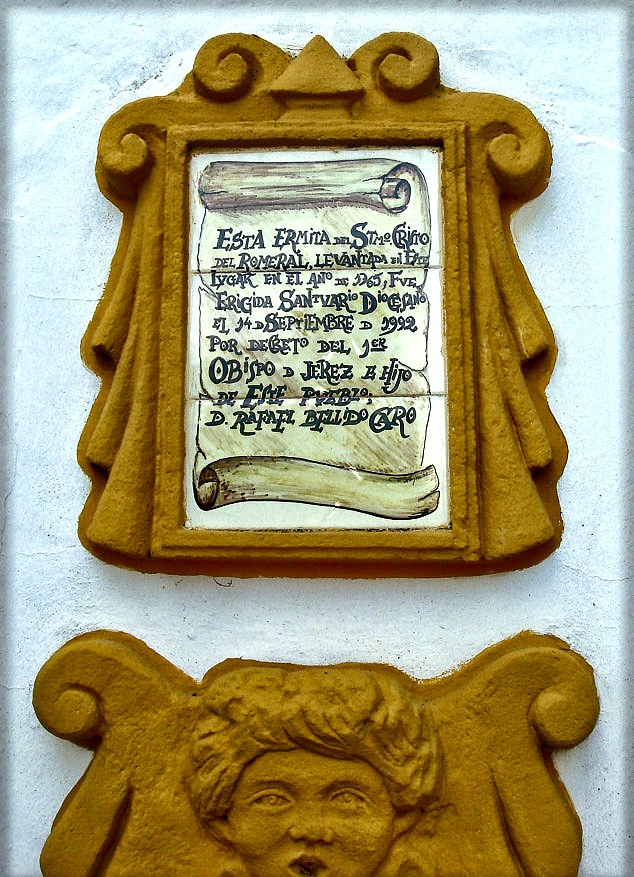 ESTA ERMITA DEL STMO CRISTO
DEL ROMERAL, LEVANTADA EN ESTE
LUGAR EN EL AÑO DE 1765, FUE
ERIGIDA SANTUARIO DIOCESANO
EL 14 D SEPTIEMBRE D 1992
POR DECRETO DEL 1ER
OBISPO D JEREZ E HIJO
DE ESTE PUEBLO;
D. RAFAEL BELLIDO CARO